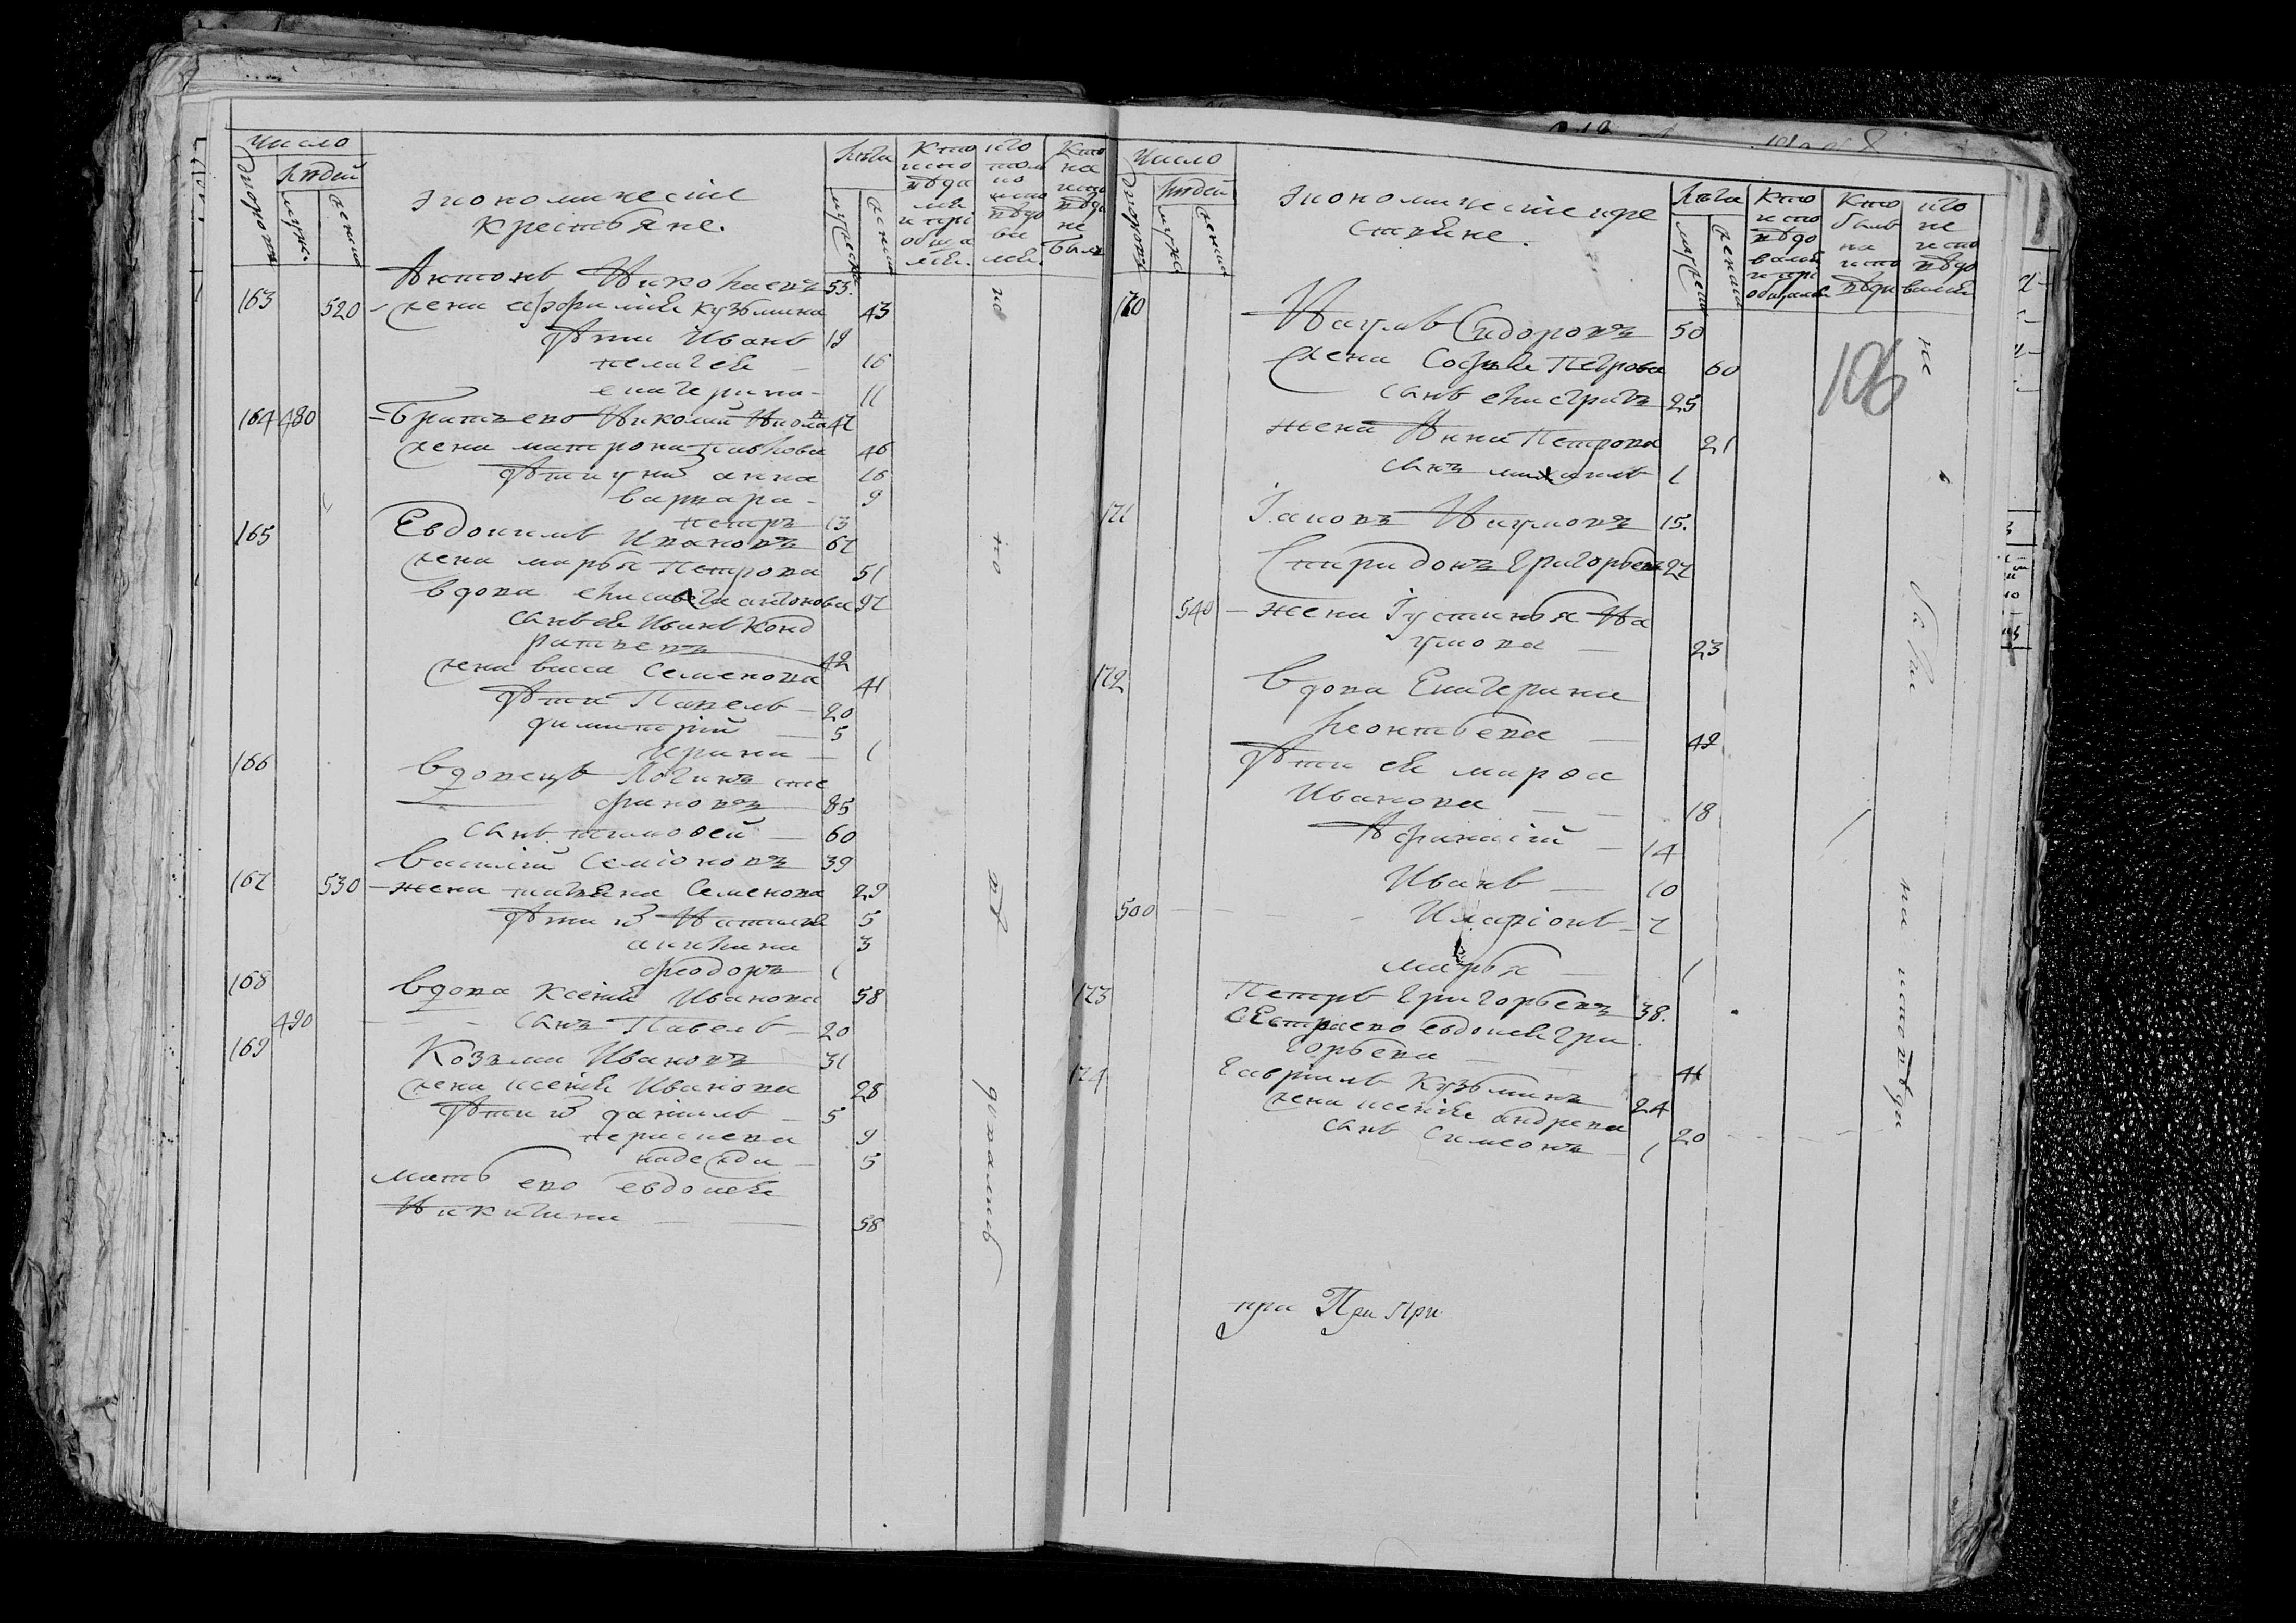 Число
Дворовъ
Людей
мужс
женск
Экономические
Крестьяне.
Лѣта
мужеска
женска
Кто
испо
вѣда
лся
и прі
обща
лся.
Кто
на
испо
вѣди
не
былъ
Антонъ Николаевъ 53.
163 520 – жена евфимия кузьмина 43
Дѣти Иванъ 19
пелагея – 16
екатерина – 11
164 480 – Братъ ево Николай Никола 47
жена матрона павлова 46
Дѣти у них анна 16
варвара – 9
петръ 13
165 Евдокимъ Ивановъ 67
жена марья Петрова 51
вдова елисавета антонова 97
сынъ ея Иванъ Конд
ратьевъ 42
жена васса Семенова 41
Дѣти Павелъ – 20
димитрій – 5
ирина – 1
166 вдовецъ Логинъ сте
фановъ 85
сынъ тимоѳей – 60
василій Семіоновъ 39
167 530 – жена татьяна Семенова 29
Дѣти их Наталия 5
акилина 3
феодоръ – 1
168 вдова Ксения Иванова 58
490 – – – сынъ Павелъ – 20
169 Козьма Ивановъ 31
жена ксения Иванова 28
Дѣти их данiилъ – 5
парасиева 9
надежда – 5
мать ево евдокия
Никитина – – 58
Число
Дворовъ
Людей
мужс
женска
экономические кре
стьяне.
Лѣта
мужеска
женска
Кто
испо
вѣдо
вался
и прі
общался
Кто
былъ
на
испо
вѣди
не
испо
вѣдо
вался
170 Наумъ Сидоровъ 50
жена Софья Петрова 60
сынъ елистратъ 25
жена Анна Петрова 21
сынъ михаилъ 1
106
171 Іаковъ Наумовъ 15.
Спиридонъ Григорьевъ 27
540 – жена Іустинья На
умова – 23
172 вдова Екатерина
Леонтьева – 49
Дѣти ея марѳа
Иванова – – 18
Афанасій – 14
Иванъ – 10
500 – Иларіонъ – 7
марья – 1
173 Петръ Григорьевъ 38.
сестра ево евдокия Гри
горьева – 41
174 Гаврiилъ Кузьминъ 24
жена ксения андреева 20
сынъ Симеонъ – 1
не были на исповѣди
при При При